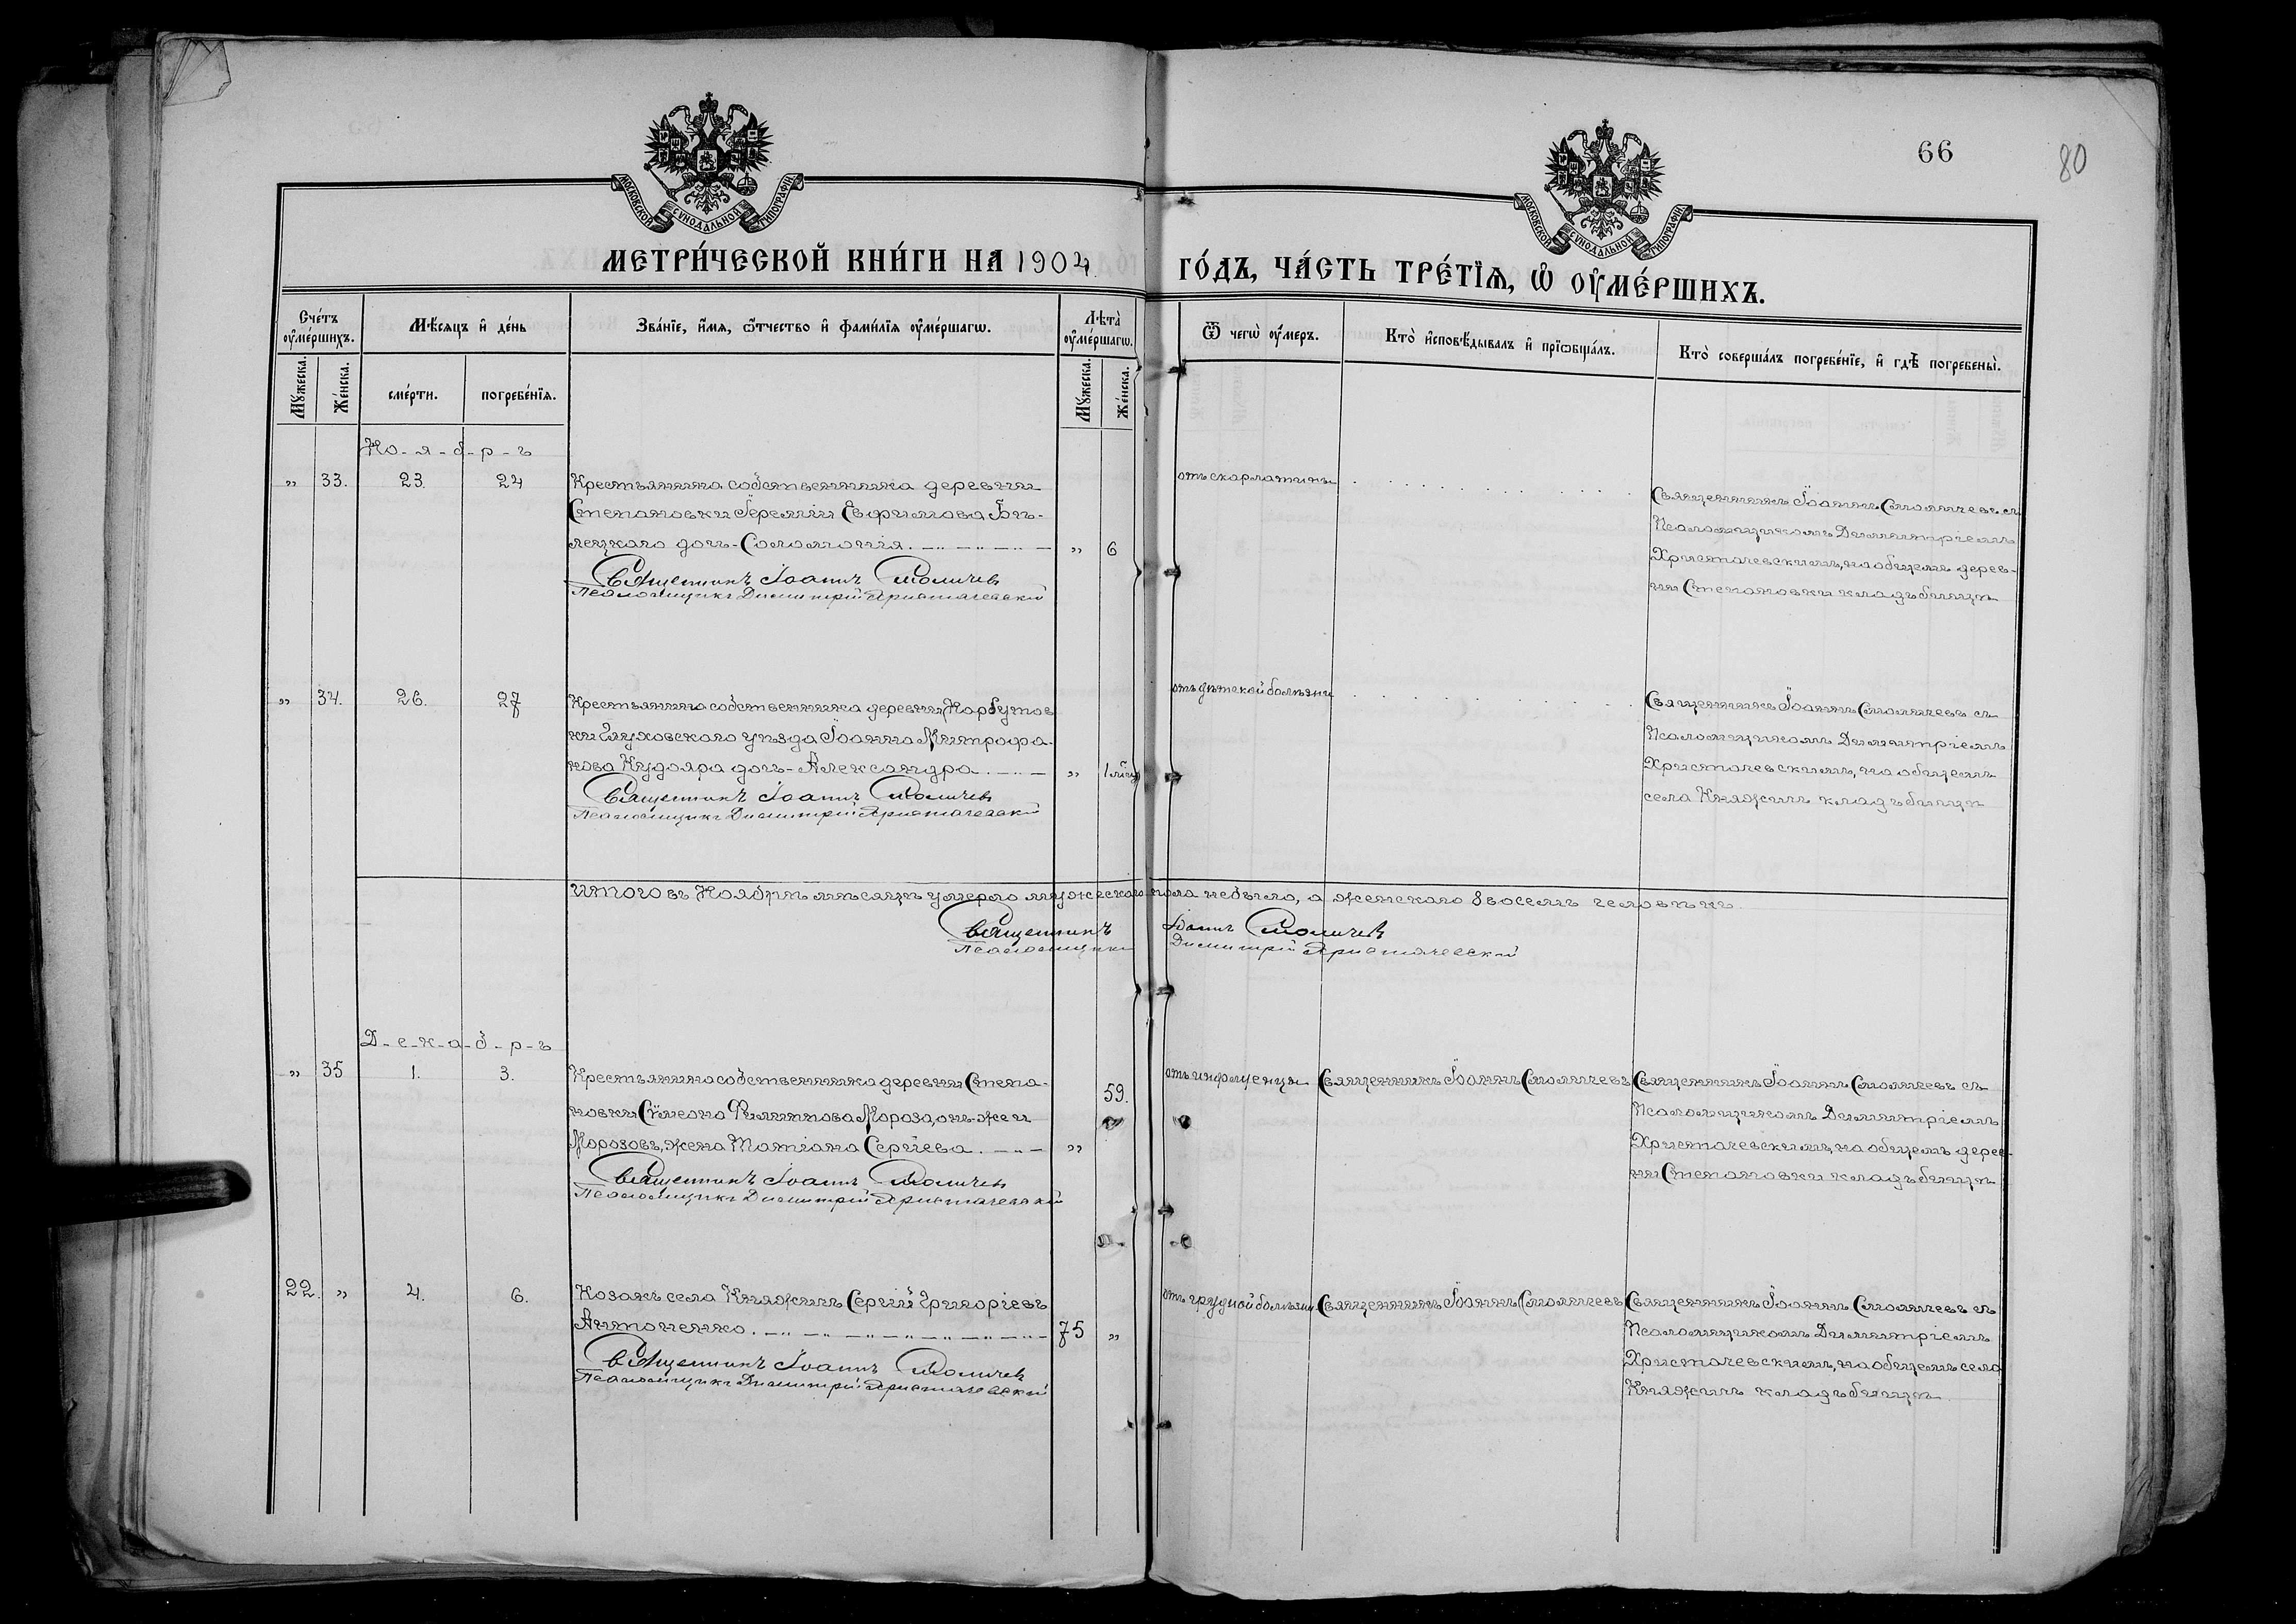 66
80
МОСКОВСКОЙ СУНОДАЛЬНОЙ ТИПОГРАФІИ
МОСКОВСКОЙ СУНОДАЛЬНОЙ ТИПОГРАФІИ
МЕТРИ́ЧЕСКОЙ КНИ́ГИ НА 1904 ГО́ДЪ, ЧА́СТЬ ТРЕ́ТІѦ, Ѡ҆ ОУ҆МЕ́РШИХЪ.
Сче́тъ оу҆ме́ршихъ.
Мѣ́сѧцъ и҆ де́нь
Зва́нїе, и҆́мѧ, ѻ҆́тчество и҆ фами́лїѧ оу҆ме́ршагѡ.
Лѣта̀ оу҆ме́ршагѡ.
Ѿ чегѡ̀ оу҆́меръ.
Кто̀ и҆сповѣ́дывалъ и҆ прїѡбща́лъ.
Кто̀ соверша́лъ погребе́нїе, и҆ гдѣ̀ погребены̀.
Мꙋ́жеска.
Же́нска.
сме́рти.
погребе́нїѧ.
Мꙋ́жеска.
Же́нска.
Но-я-б-р-ь
„ 33. 23. 24 Крестьянина собственника деревни
Степановки Іереміи Евфимова Бѣ-
лецкаго дочь-Соломонія. „ 6
Священникъ Іоаннъ Смоличев
Псаломщикъ Димитрій Христачевскій
отъ скарлатины
Священникъ Іоаннъ Смоличевъ съ
Псаломщикомъ Димитріемъ
Христачевскимъ, на общемъ дерев-
ни Степановки кладъбищѣ
„ 34. 26. 27 Крестьянина собственника деревни Нарбутов
ки Глуховского уѣзда Іоанна Митрофа-
нова Кудояра дочь-Александра. „ 1
Священникъ Іоаннъ Смоличев
Псаломщикъ Димитрій Христачевскій
отъ дѣтской болѣзни
Священникъ Іоаннъ Смоличевъ съ
Псаломщикомъ Димитріемъ
Христачевскимъ, на общемъ
села Княжичъ кладъбищѣ
Итого въ Ноябрѣ мѣсяцѣ умерло мужеского пола небыло, а женского 8 восемь человѣкъ.
Священникъ Іоаннъ Смоличев
Псаломщикъ Димитрій Христачевскій
Д-е-к-а-б-р-ь
„ 35 1. 3. Крестьянина собственника деревни Степа-
новки Сумеона Филиппова Мороза, онъ-же и
Морозовъ, жена Татіана Сергіева. „ 59.
Священникъ Іоаннъ Смоличев
Псаломщикъ Димитрій Христачевскій
отъ инфлуенцы Священникъ Іоаннъ Смоличевъ
Священникъ Іоаннъ Смоличевъ съ
Псаломщикомъ Димитріемъ
Христачевскимъ, на общемъ дерев-
ни Степановки кладъбищѣ
22. „ 4. 6. Козакъ села Княжичъ Сергій Григоріевъ
Антоненко. 75 „
Священникъ Іоаннъ Смоличев
Псаломщикъ Димитрій Христачевскій
отъ грудной болѣзни Священникъ Іоаннъ Смоличевъ
Священникъ Іоаннъ Смоличевъ съ
Псаломщикомъ Димитріемъ
Христачевскимъ, на общемъ села
Княжичъ кладъбищѣ.